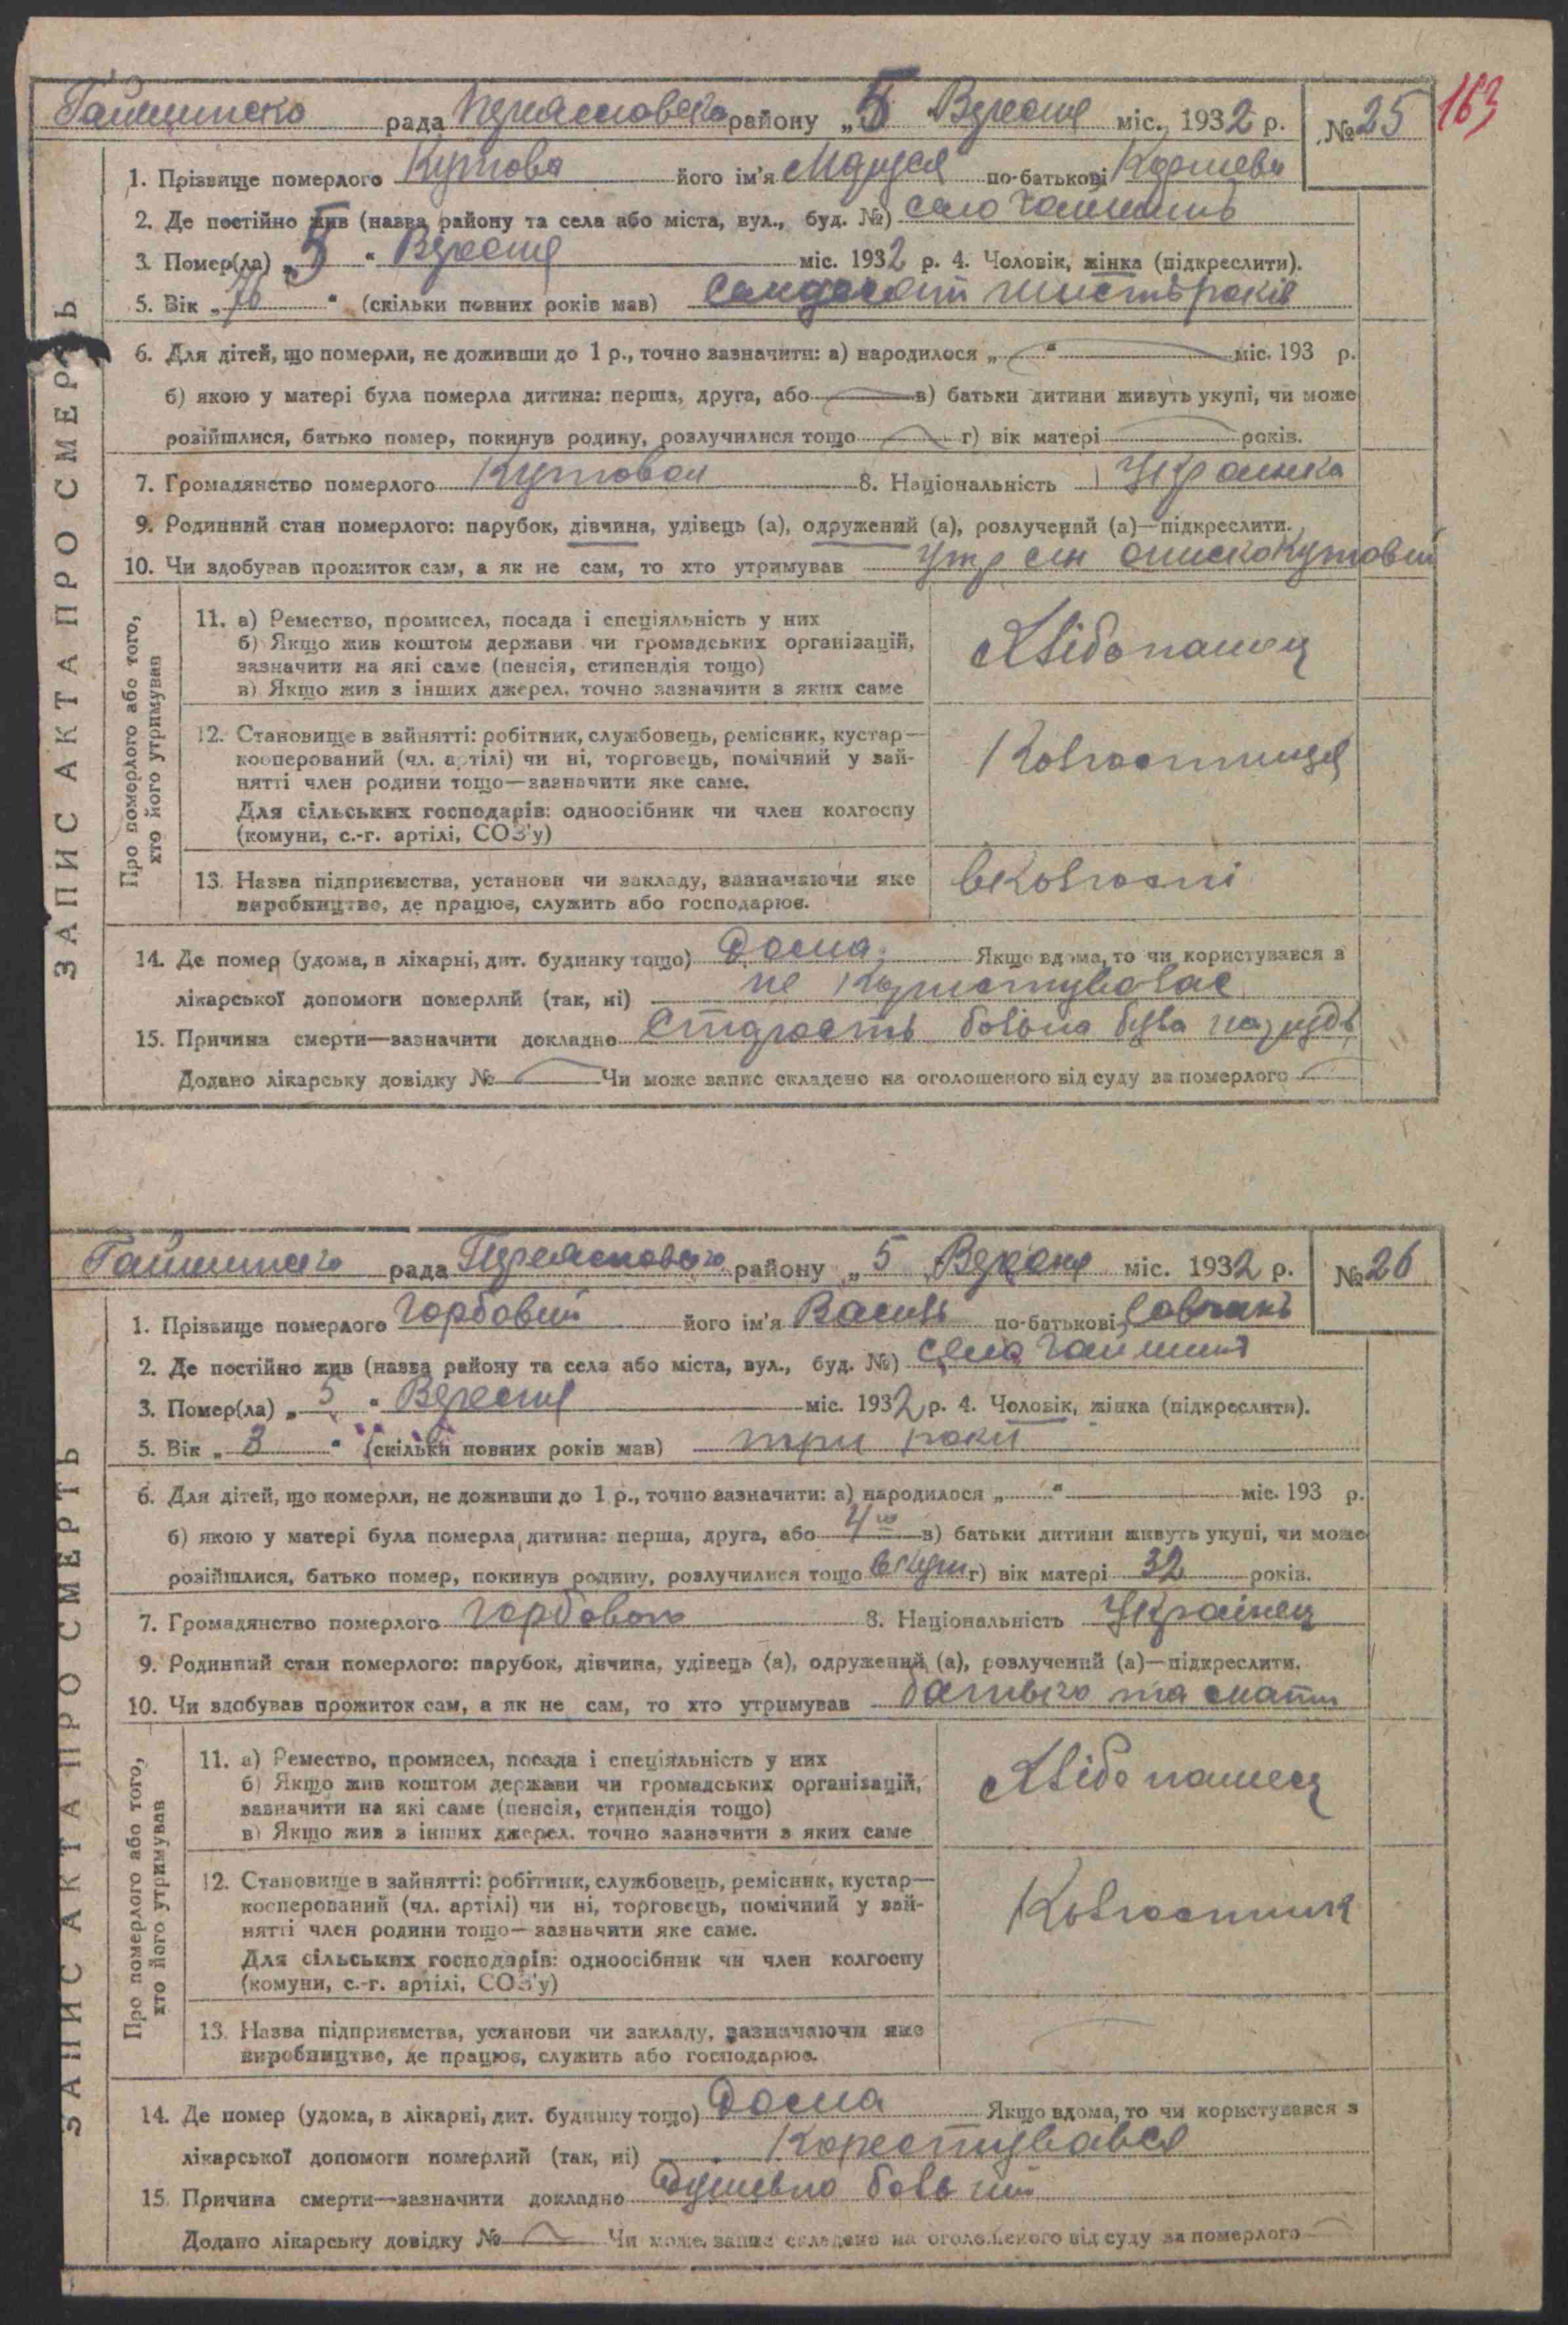 163
рада району „5 Вересня міс. 1932 р. № 25
ЗАПИС АКТА ПРО СМЕРТЬ
1. Прізвище померлого Кутова його ім'я Маруся по-батькові
2. Де постійно жив (назва району та села або міста, вул., буд. №) село Гайшинь
3. Помер(ла) „5 " Вересня міс. 1932 р. 4. Чоловік, жінка (підкреслити).
5. Вік „76 " (скільки повних років мав) шисть років
6. Для дітей, що померли, не доживши до 1 р., точно зазначити: а) народилося „ " міс. 193 р.
б) якою у матері була померла дитина: перша, друга, або в) батьки дитини живуть укупі, чи може
розійшлися, батько помер, покинув родину, розлучилися тощо г) вік матері років.
7. Громадянство померлого Кутовои 8. Національність Украинка
9. Родинний стан померлого: парубок, дівчина, удівець (а), одружений (а), розлучений (а)—підкреслити.
10. Чи здобував прожиток сам, а як не сам, то хто утримував син Кутовий
Про померлого або того,
хто його утримував
11. а) Ремество, промисел, посада і спеціяльність у них
б) Якщо жив коштом держави чи громадських організацій,
зазначити на які саме (пенсія, стипендія тощо)
в) Якщо жив з інших джерел, точно зазначити з яких саме
Хлібопашец
12. Становище в зайнятті: робітник, службовець, ремісник, кустар—
кооперований (чл. артілі) чи ні, торговець, помічний у зай-
нятті член родини тощо—зазначити яке саме.
Для сільських господарів: одноосібник чи член колгоспу
(комуни, с.-г. артілі, СОЗ'у)
Колгоспниця
13. Назва підприємства, установи чи закладу, зазначаючи яке
виробництво, де працює, служить або господарює.
вколгоспі
14. Де помер (удома, в лікарні, дит. будинку тощо) Дома Якщо вдома, то чи користувався з
лікарської допомоги померлий (так, ні) не
15. Причина смерти—зазначити докладно Старость больна була на
Додано лікарську довідку № Чи може запис складено на оголошеного від суду за померлого
рада району „5 Вересня міс. 1932 р. № 26
ЗАПИС АКТА ПРО СМЕРТЬ
1. Прізвище померлого Горбовий його ім'я Василь по-батькові
2. Де постійно жив (назва району та села або міста, вул., буд. №) села Гайшинь
3. Помер(ла) „5 " Вересня міс. 1932 р. 4. Чоловік, жінка (підкреслити).
5. Вік „3 " (скільки повних років мав) три роки
6. Для дітей, що померли, не доживши до 1 р., точно зазначити: а) народилося „ " міс. 193 р.
б) якою у матері була померла дитина: перша, друга, або 4 в) батьки дитини живуть укупі, чи може
розійшлися, батько помер, покинув родину, розлучилися тощо вкупи г) вік матері 32 років.
7. Громадянство померлого Горбового 8. Національність Украінец
9. Родинний стан померлого: парубок, дівчина, удівець (а), одружений (а), розлучений (а)—підкреслити.
10. Чи здобував прожиток сам, а як не сам, то хто утримував батько та мати
Про померлого або того,
хто його утримував
11. а) Ремество, промисел, посада і спеціяльність у них
б) Якщо жив коштом держави чи громадських організацій,
зазначити на які саме (пенсія, стипендія тощо)
в) Якщо жив з інших джерел, точно зазначити з яких саме
Хлібопашец
12. Становище в зайнятті: робітник, службовець, ремісник, кустар—
кооперований (чл. артілі) чи ні, торговець, помічний у зай-
нятті член родини тощо—зазначити яке саме.
Для сільських господарів: одноосібник чи член колгоспу
(комуни, с.-г. артілі, СОЗ'у)
Колгоспник
13. Назва підприємства, установи чи закладу, зазначаючи яке
виробництво, де працює, служить або господарює.
14. Де помер (удома, в лікарні, дит. будинку тощо) Дома Якщо вдома, то чи користувався з
лікарської допомоги померлий (так, ні) Користувався
15. Причина смерти—зазначити докладно Душевно больний
Додано лікарську довідку № Чи може запис складено на оголошеного від суду за померлого